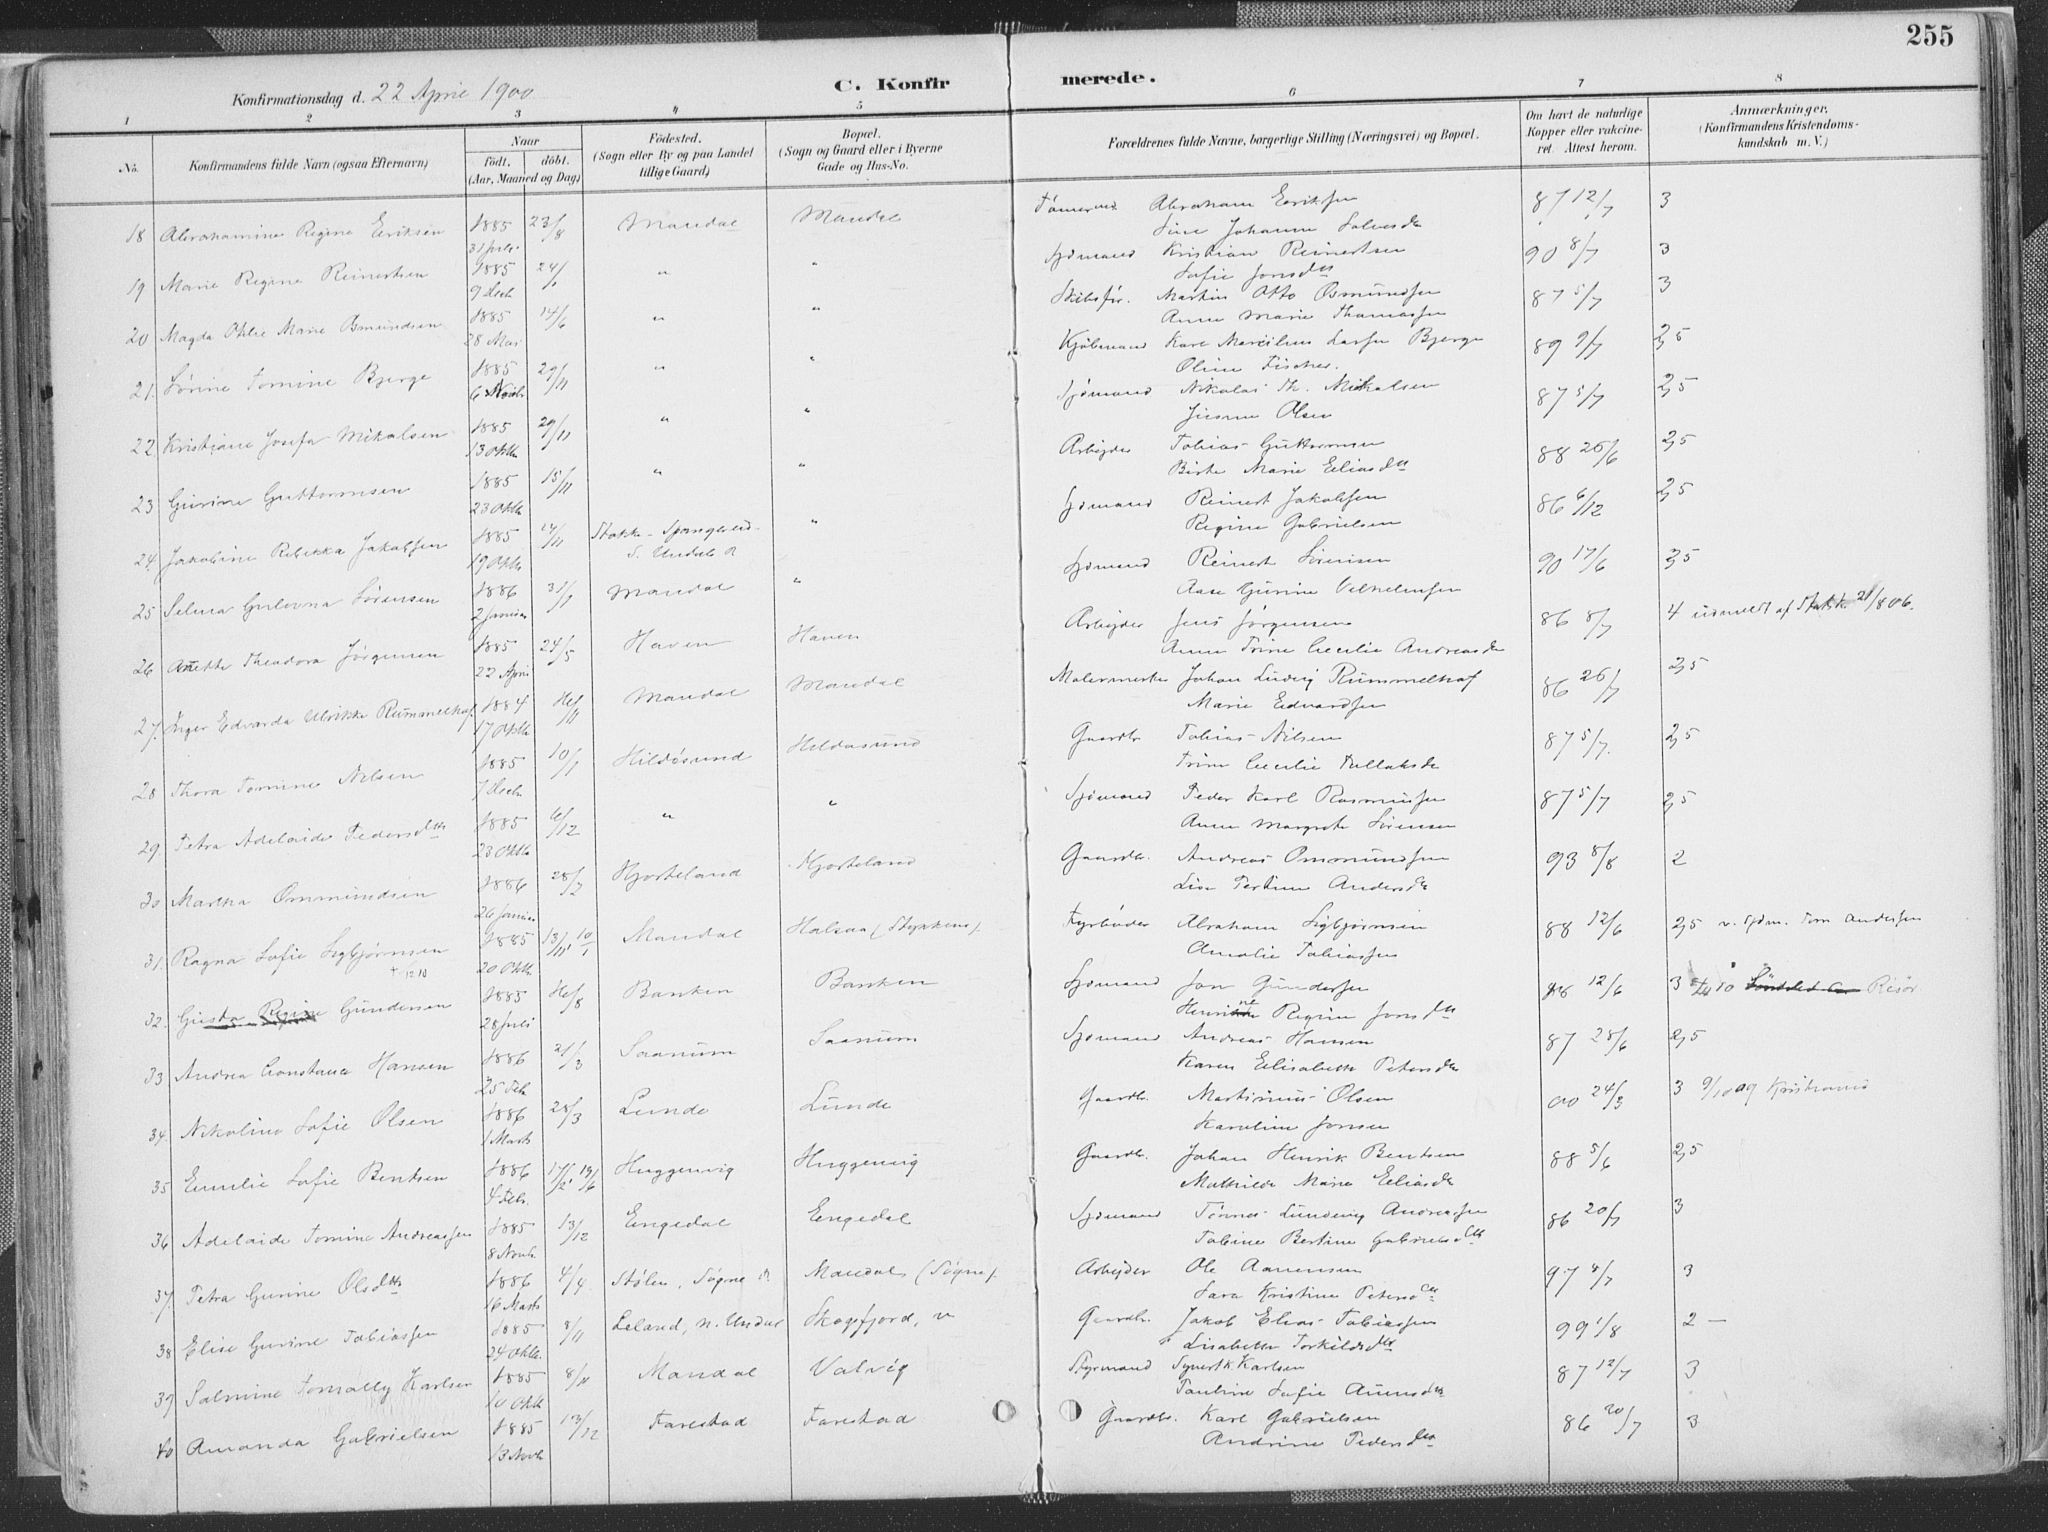 255
C. Konfirmerede.
Konfirmationsdag d. 22 April 1900
1 2 3 4 5 6 7 8
No.
Konfirmandens fulde Navn (ogsaa Efternavn)
Naar
födt. döbt.
(Aar, Maaned og Dag)
Födested.
(Sogn eller By og paa Landet
tillige Gaard)
Bopæl.
(Sogn og Gaard eller i Byerne
Gade og Hus-No.
Forældrenes fulde Navne, borgerlige Stilling (Næringsvei) og Bopæl.
Om havt de naturlige
Kopper eller vakcine-
ret. Attest herom.
Anmærkninger.
(Konfirmandens Kristendoms-
kundskab m. V.)
18 Abrahamine Regine Eriksen 1885 23/8 Mandal Mandal Abraham Eriksen 87 12/7 3
31 Juli
19 Marie Regine Reinertsen 1885 24/1 " " Sjömand Kristian Reinertsen 90 8/7 3
9 Decb Sofie Jonsdtr
20 Magda Othlie Marie Osmundsen 1885 14/6 " " Skibsfør. Martin Otto Osmundsen 87 5/7 3
28 Mai Anne Marie Thomassen
21. Sörine Tomine Bjerge 1885 29/11 " " Kjöbmand Karl Larsen Bjerge 89 9/7 2,5
6 Novb Oline Fischer.
22 Kristiane Josefa Mikalsen 1885 29/11 " " Sjömand Nikolai Th. Mikalsen 87 5/7 2,5
13 Oktb Olsen
23 Gurine Guttormsen 1885 15/11 " " Arbeider Tobias Guttormsen 88 26/6 2,5
23 Oktb Birte Marie Eliasdtr
24 Jakobine Rebekka Jakobsen 1885 " Sjömand Reinert Jakobsen 86 6/12 2,5
19 Oktb Regine Gabrielsen
25 Selma Gulovna Sörensen 1886 31/1 Mandal " Sjömand Reinert Sörensen 90 17/6
2 Januar Aase Gurine
26 Anette Theodora Jörgensen 1885 24/5 Haven Haven Arbeider Jens Jörgensen 86 8/7 4 udmeldt af Statsk. 21/8 06.
22 April Anne Trine Cecilie Andreasdtr
27. Inger Edvarda Ulrikke Rummelhof 1884 Mandal Mandal Malermester Johan Ludvig Rummelhof 86 26/7 2,5
17 Oktb Marie Edvardsen
28 Thora Tomine Nilsen 1885 10/1 Hildösund Hildøsund Gaardbr. Tobias Nilsen 87 5/7. 2,5
7 Decb Trine Cecilie
29 Petra Adelaide Pedersdtr 1885 6/12 " " Sjömand Peder Karl Rasmussen 87 5/7 2,5
23 Oktb Anne Margrete Sörensen
30 Martha Ommundsen 1886 28/2 Hjorteland Hjorteland Gaardbr. Andreas Ommundsen 93 8/8 2
26 Januar Andersdtr
31. Ragna Sofie Sigbjörnsen 1885 Mandal Halsaa Fyrböder Abraham Sigbjörnsen 88 12/6 2,5 v. Sjöm. Tom Andersen
20 Oktb Amalie Tobiassen
32. Gusta Regine Gundersen 1885 Banken Banken Sjömand Jon Gundersen 88 12/6 3 Risör
28 Juli Regine Jonsdtr
33 Andrea Constance Hansen 1886 21/3 Saanum Saanum Sjömand Andreas Hansen 87 28/6 2,5
25 Feb. Karen Elisabeth Petersdtr
34. Nikoline Sofie Olsen 1886 28/3 Lunde Lunde Gaardbr. Martinius Olsen 00 24/3 3 9/10 09 Kristiansand
1 Marts Karoline Jonsen
35 Emilie Sofie Bentsen 1886 Huggenvig Huggenvig Gaardbr. Johan Henrik Bentsen 88 5/6 2,5
4 Feb. Mathilde Marie Eliasdtr
36 Adelaide Tomine Andreassen 1885 13/12 Engedal Engedal Sjömand Törnes Lundevig Andreassen 86 20/7 3
8 Novb Tobine Bertine Gabrielsdtr
37. Petra Gurine Olsdtr 1886 4/4. Stölen, Sögne Mandal (Sögne). Arbeider Ole Aanensen 97 8/7 3
16 Marts Sara Kristine Petersdtr
38 Elise Gurine Tobiassen 1885 8/11 Leland, n. Undal Skogsfjord, " Gaardbr. Jakob Elias Tobiassen 99 1/8 2 —
24 Oktb. Lisabeth Torkildsdtr
39 Salmine Tomally Karlsen 1885 8/11 Mandal Valvig Styrmand Syvert K Karlsen 87 12/7 3
10 Oktb Pauline Sofie
40 Amanda Gabrielsen 1885 13/12 Farestad Farestad Gaardbr. Karl Gabrielsen 86 20/7 3
13 Novb Andrine Pedersdtr